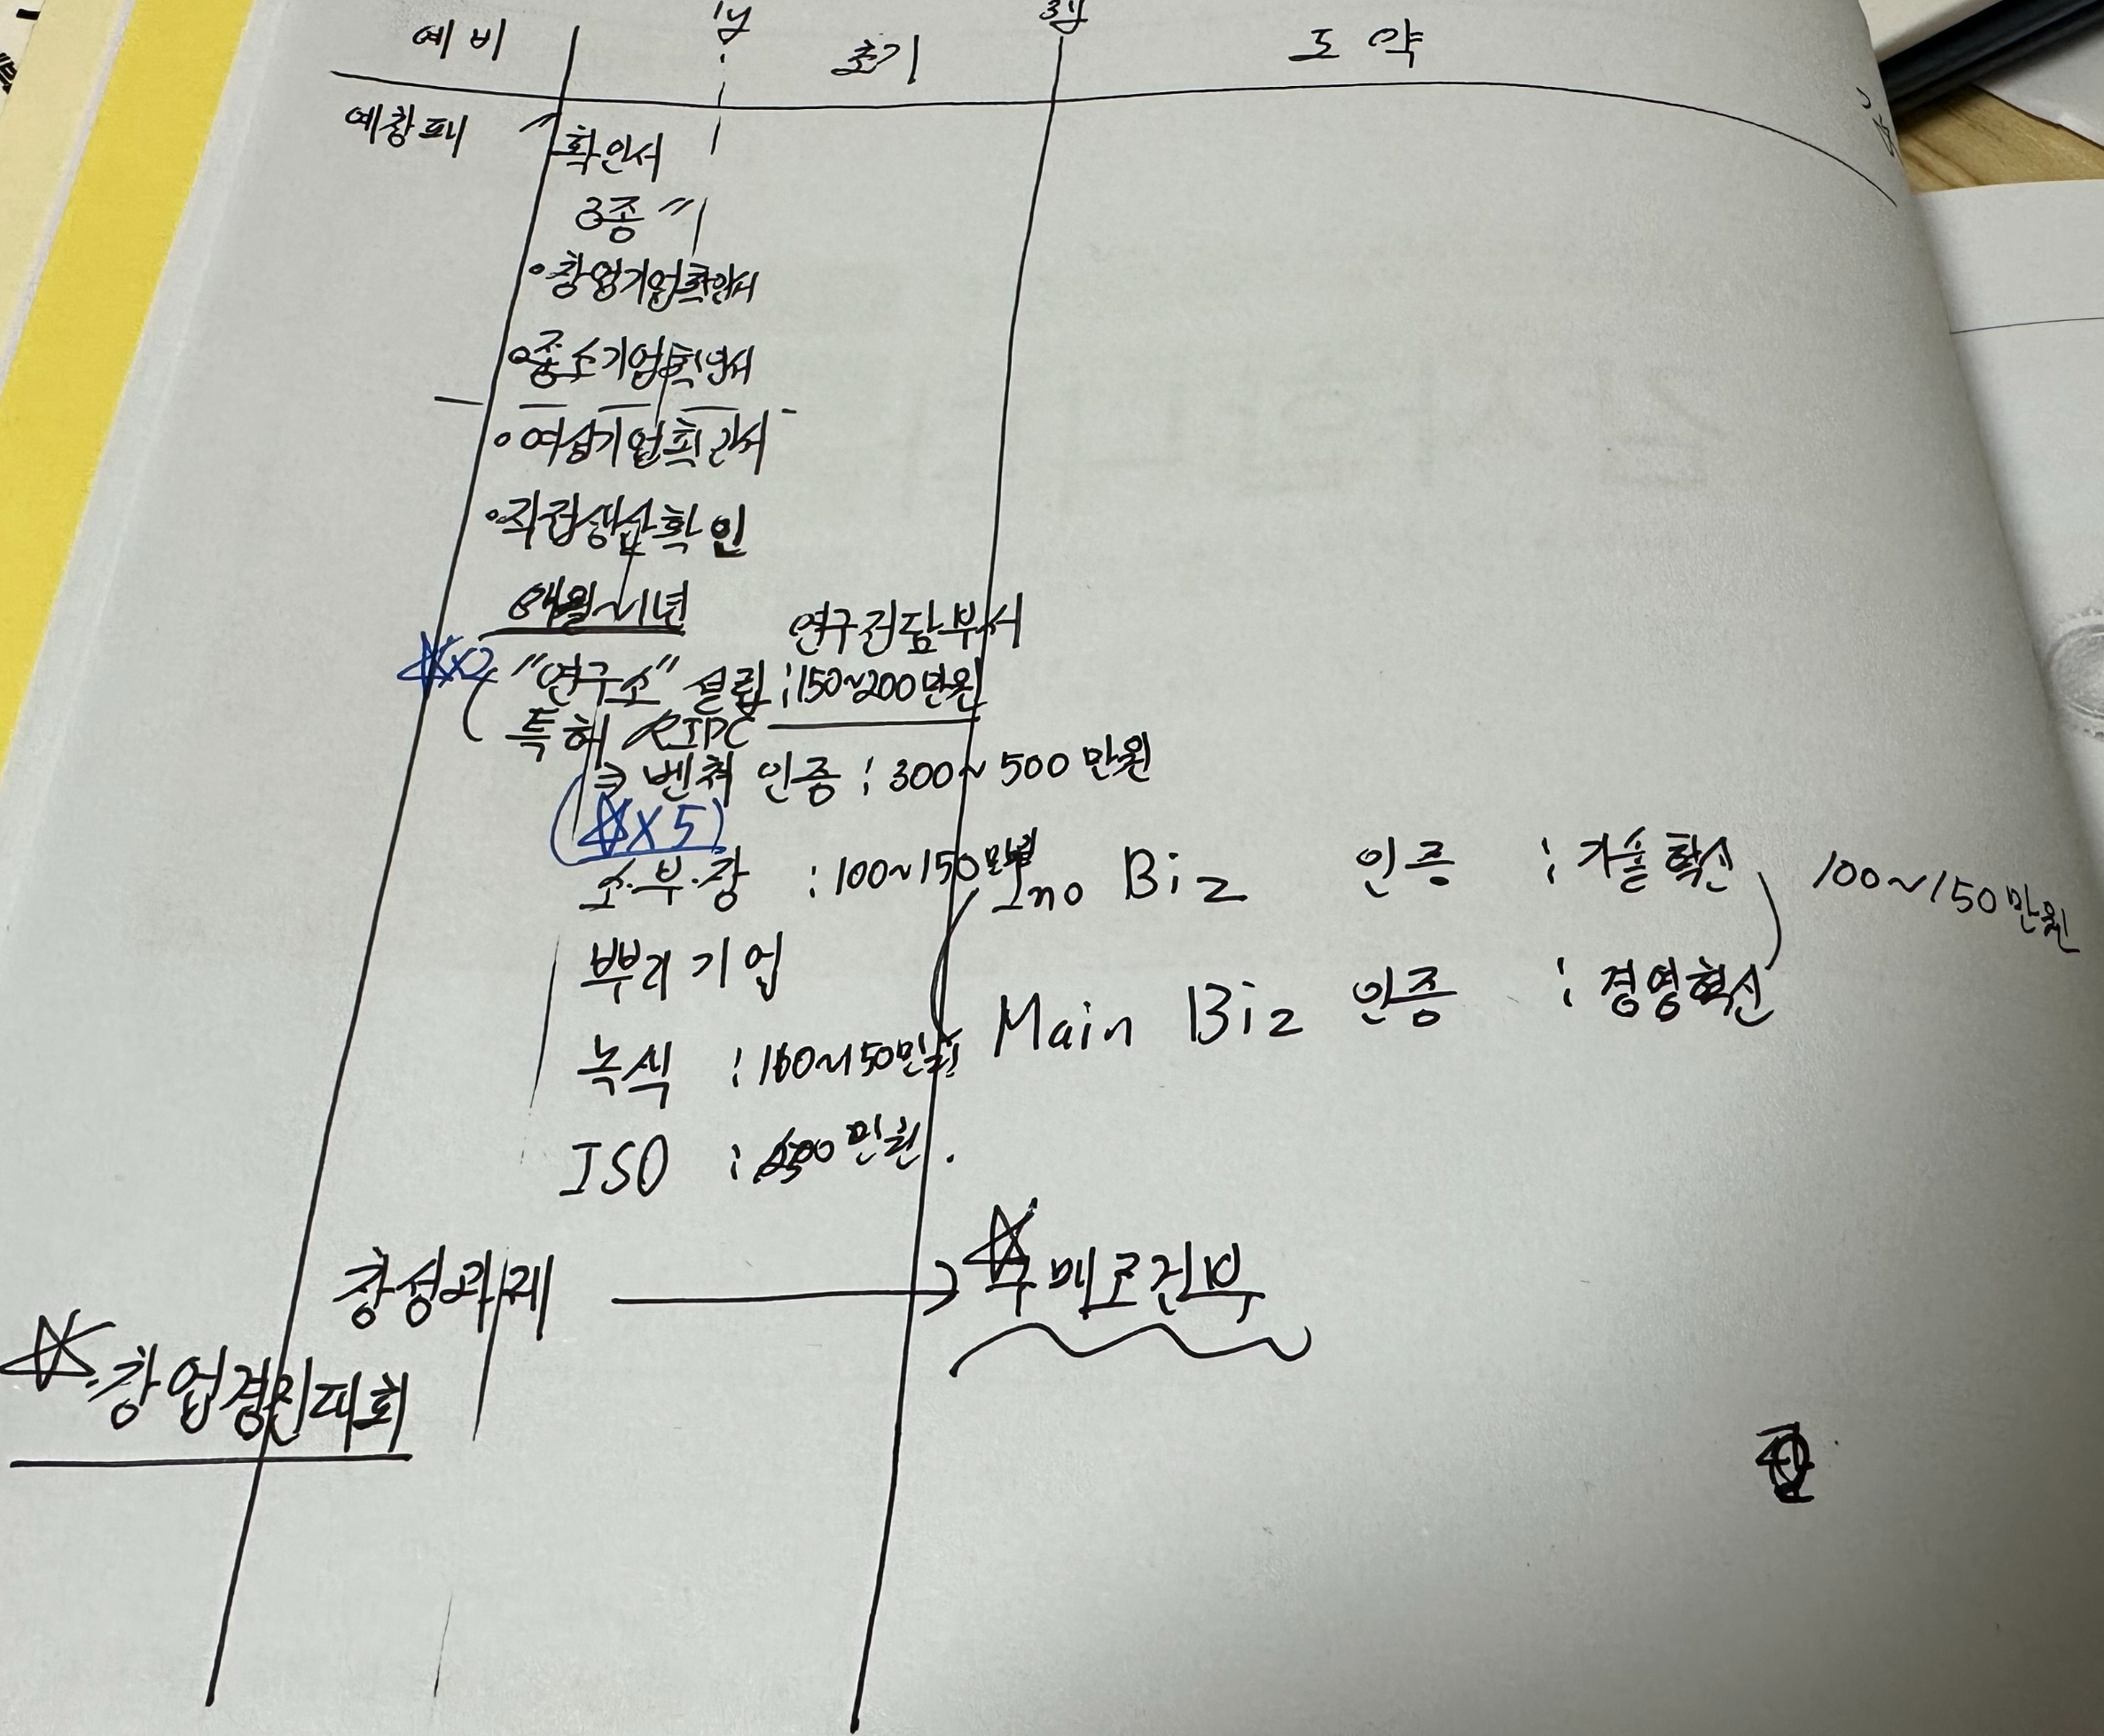 예비 1y 초기 3y 도약
예창패 " 확인서
3종 "
• 창업기업확인서
• 중소기업확인서
• 여성기업확인서
• 직접생산확인
6개월~1년
연구전담부서
☆x2 "연구소" 설립 : 150~200만원
특허 RIPC
벤쳐 인증 : 300~500만원
(☆X5)
소·부·장 : 100~150만원
Ino Biz 인증 : 기술혁신 100~150만원
뿌리기업
Main Biz 인증 : 경영혁신
녹색 : 100~150만원
ISO : 만원
창성과제 → ☆구매조건부
☆창업경진대회